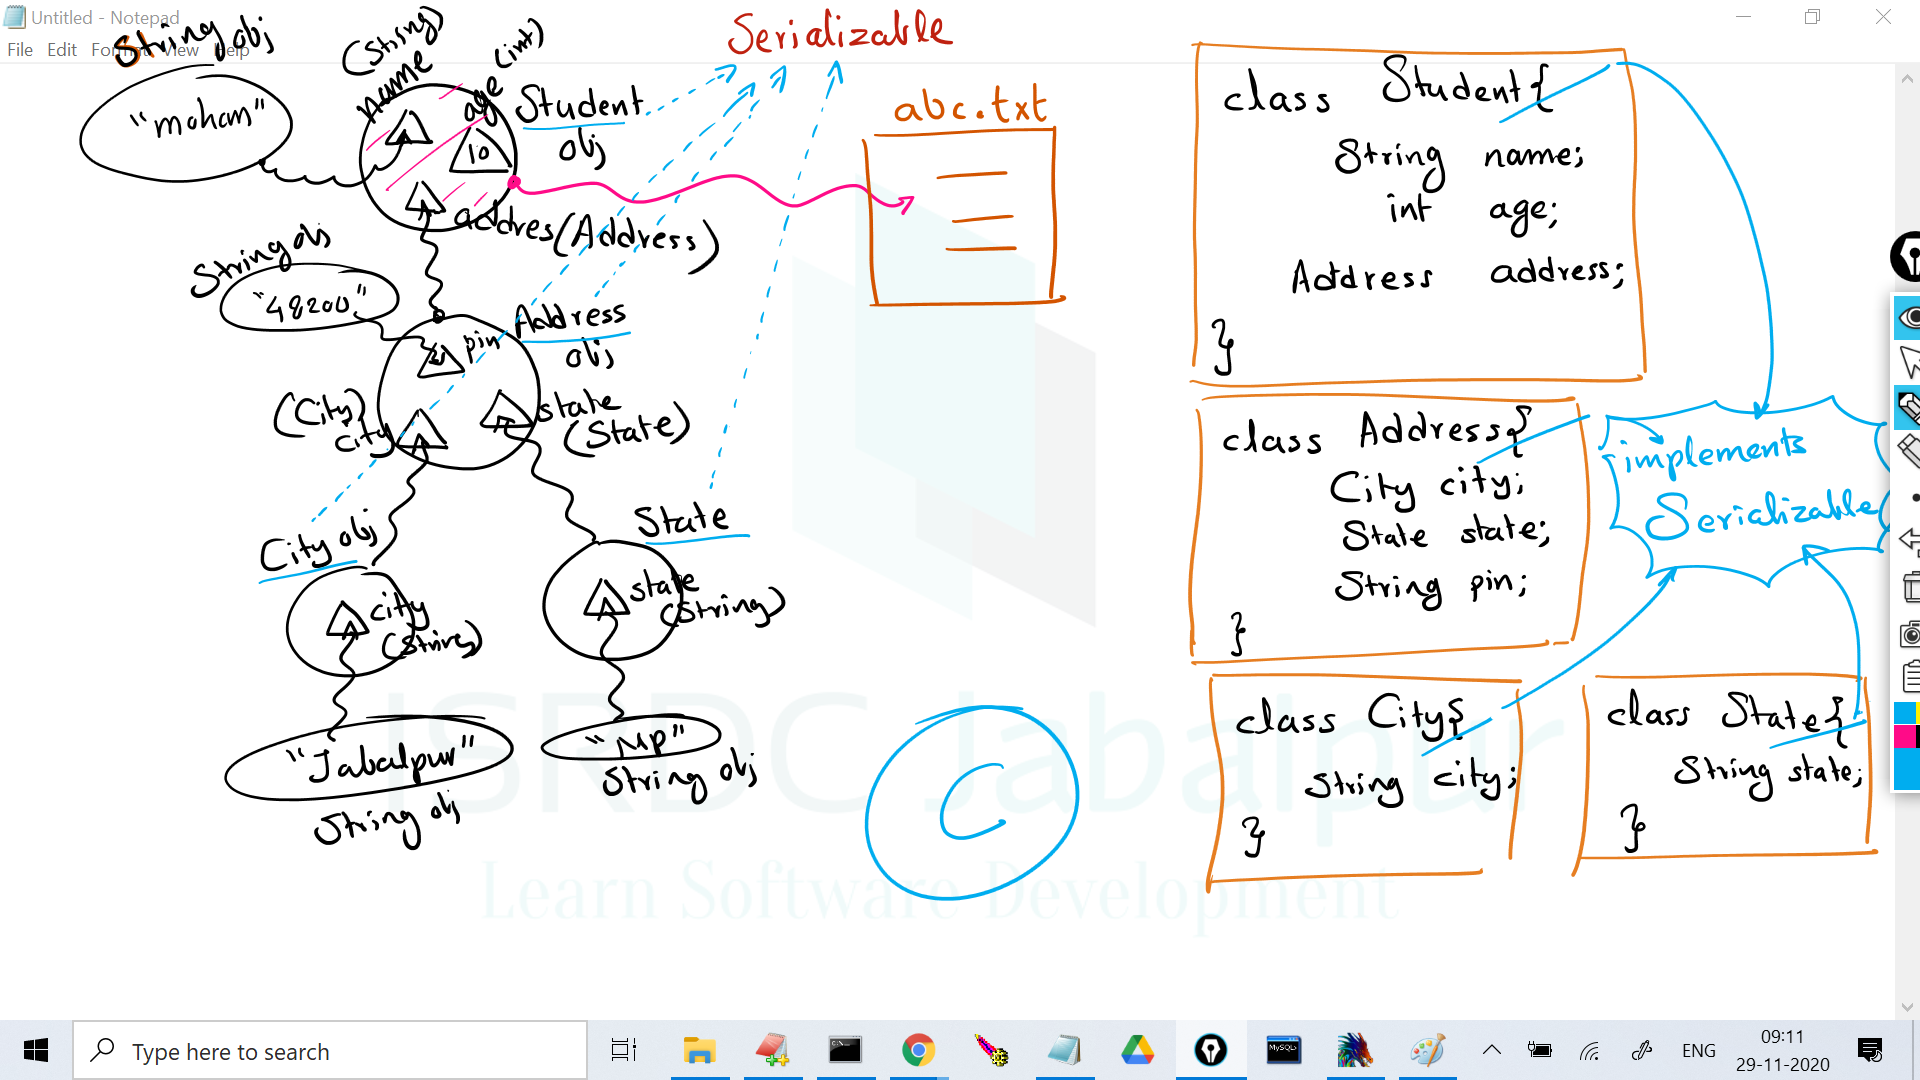 Untitled - Notepad
File Edit Format View Help
String obj
"mohan"
(String)
name
age (int)
10
Student
obj
addres (Address)
Serializable
abc.txt
String obj
"48200"
pin
Address
obj
(City)
city
state
(State)
City obj
city
(String)
State
state
(String)
"Jabalpur"
String obj
"MP"
String obj
C
class Student{
String name;
int age;
Address address;
}
class Address{
City city;
State state;
String pin;
}
implements
Serializable
class City{
String city;
}
class State{
String state;
}
ISRDC Jabalpur
Learn Software Development
Type here to search
MySQL
ENG
09:11
29-11-2020